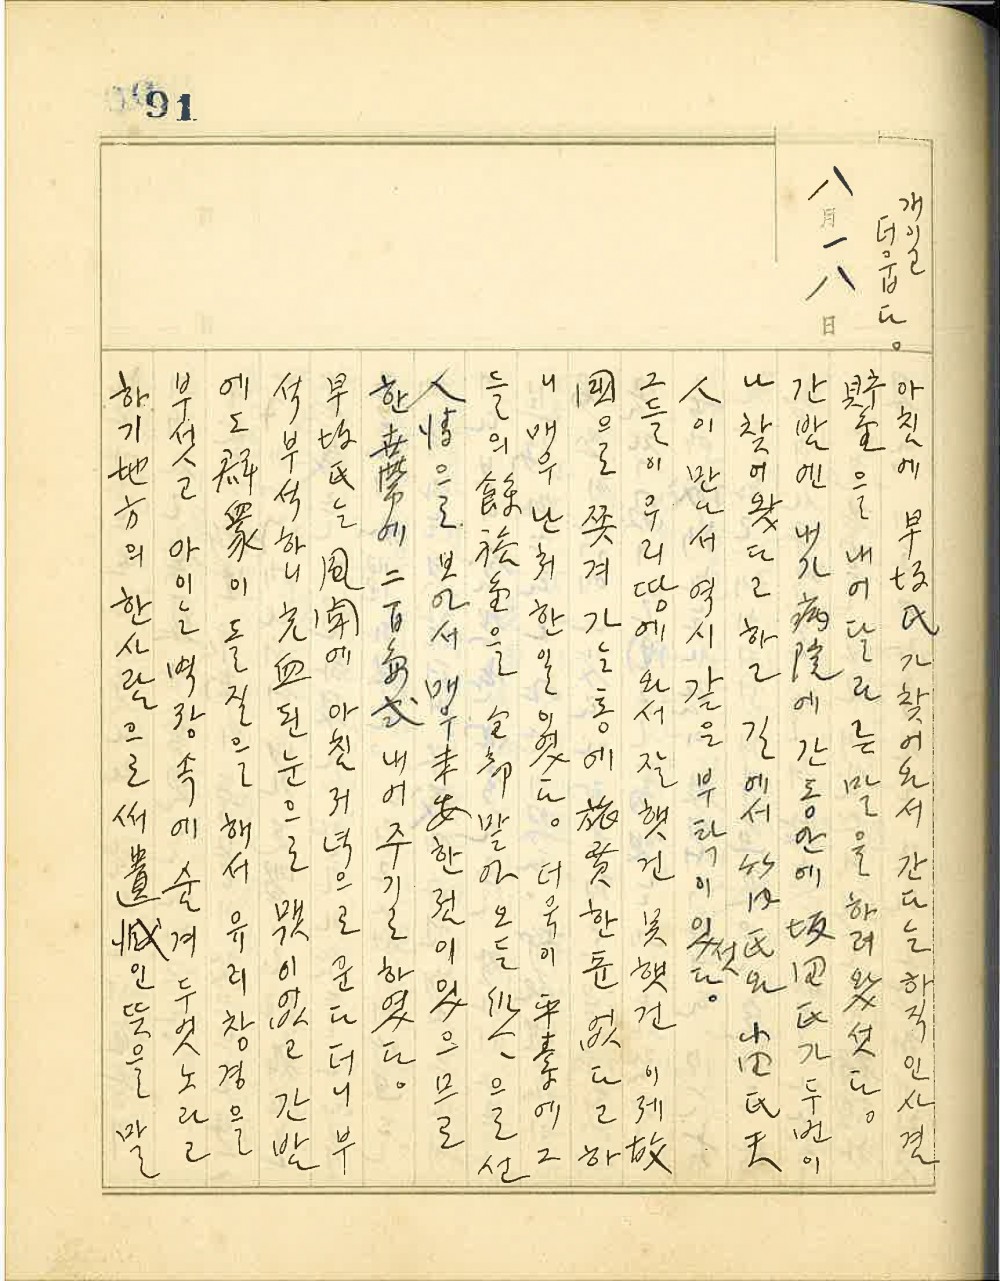 91
개이고
더웁다。
八月一八日
아침에 早坂氏가 찾어와서 간다는 하직인사 겸
貯金을 내어달라는 말을 하려 왔섯다。
간밤엔 내가 病院에 간 동안에 坂田氏가 두번이
나 찾어왔다고 하고 길에서 竹内氏와 小田氏夫
人이 만나서 역시 같은 부탁이 있섯다。
그들이 우리 땅에 와서 잘햇건 못햇건 이제 故
國으로 쫓겨가는 통에 旅費 한푼 없다고 하
니 매우 난처한 일이였다。 더욱이 平素에 그
들의 餘裕金을 全部 말아오듯 으로선
人情으로 보아서 매우 未安한 점이 있으므로
한 世帶에 二百 式 내어주기로 하였다。
早坂氏는 風南에 아침 저녁으로 운다더니 부
석부석하니 充血된 눈으로 이 없고 간밤
에도 群衆이 돌질을 해서 유리창 경을
부섯고 아이는 벽장 속에 숨겨두엇노라고
하기 地方의 한사람으로써 遺憾인 뜻을 말